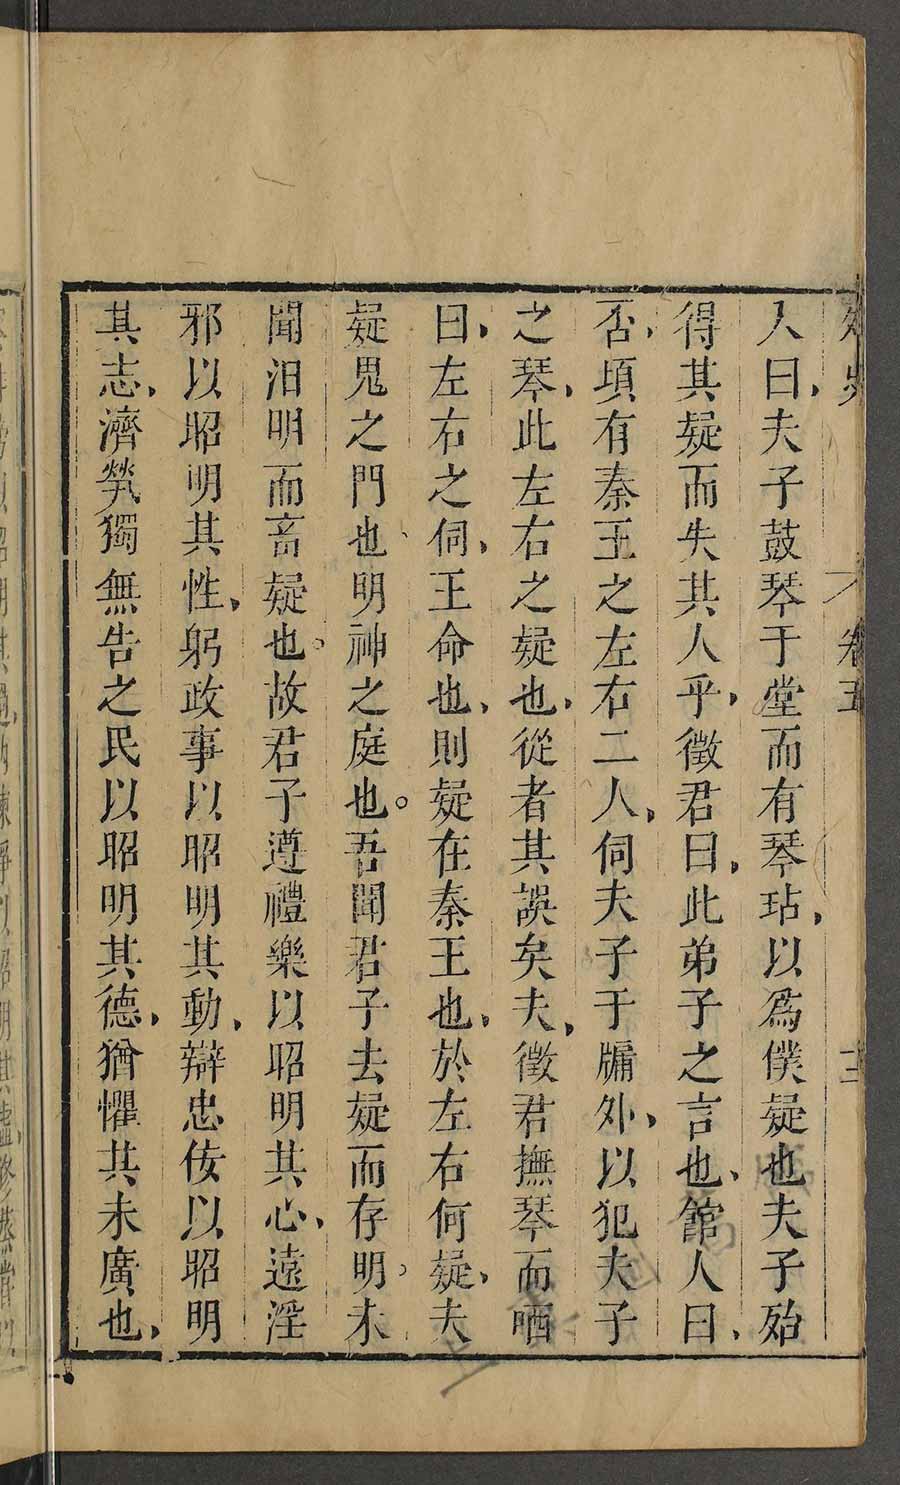 卷五
人曰夫子鼓琴于堂而有琴玷以爲僕疑也夫子殆
得其疑而失其人乎徵君曰此弟子之言也館人曰
否頃有秦王之左右二人伺夫子于牖外以犯夫子
之琴此左右之疑也從者其誤矣夫徵君撫琴而哂
曰左右之伺王命也則疑在秦王也於左右何疑夫
疑鬼之門也明神之庭也吾聞君子去疑而存明未
聞汨明而畜疑也故君子遵禮樂以昭明其心遠淫
邪以昭明其性躬政事以昭明其動辯忠佞以昭明
其志濟煢獨無告之民以昭明其德猶懼其未廣也